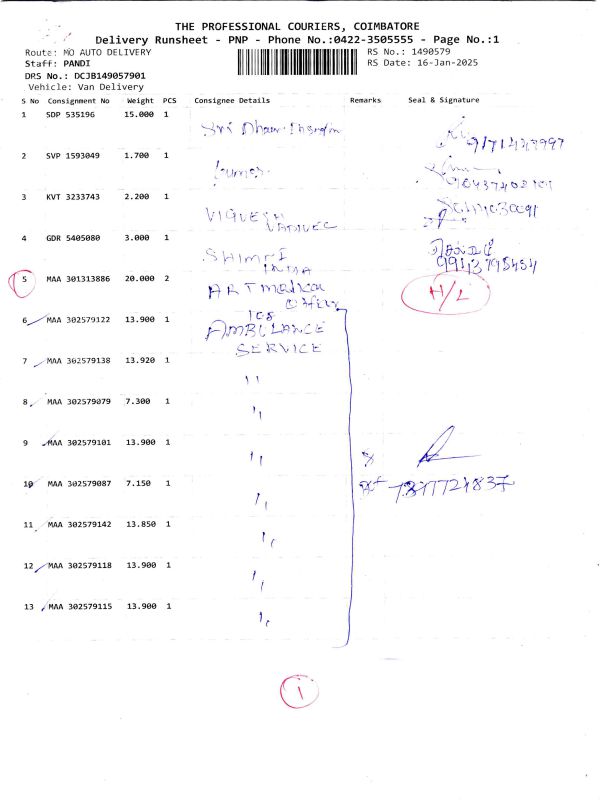 THE PROFESSIONAL COURIERS, COIMBATORE
Delivery Runsheet - PNP - Phone No.:0422-3505555 - Page No.:1
Route: MO AUTO DELIVERY RS No.: 1490579
Staff: PANDI RS Date: 16-Jan-2025
DRS No.: DCJB149057901
Vehicle: Van Delivery
S No Consignment No Weight PCS Consignee Details Remarks Seal & Signature
1 SDP 535196 15.000 1 Sri
2 SVP 1593049 1.700 1
3 KVT 3233743 2.200 1 VIGNESH
4 GDR 5405080 3.000 1 SHIMPI
INDIA
5 MAA 301313886 20.000 2 ART Medical H/L
108
6 MAA 302579122 13.900 1 AMBULANCE
SERVICE
7 MAA 302579138 13.920 1 11
8 MAA 302579079 7.300 1 11
9 MAA 302579101 13.900 1 11
10 MAA 302579087 7.150 1 11
11 MAA 302579142 13.850 1 11
12 MAA 302579118 13.900 1 11
13 MAA 302579115 13.900 1 11
1